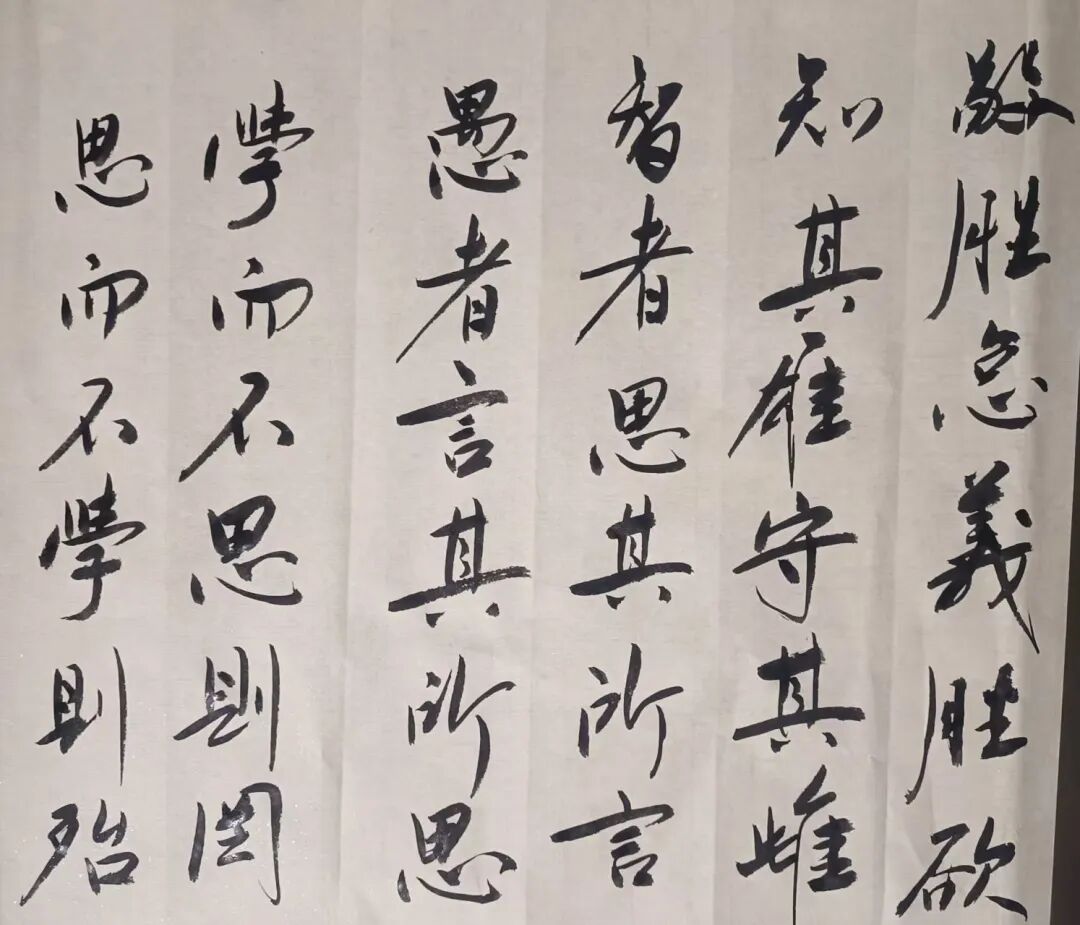 敬胜怠義胜欲
知其雄守其雌
智者思其所言
愚者言其所思
學而不思則罔
思而不學則殆